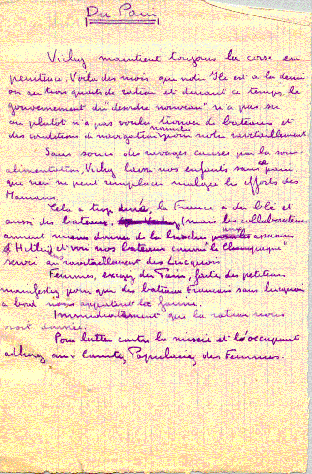 Du Pain
Vichy maintient toujours la corse en
pénitence. Voila des mois que notre Ile est à la demi
ou au trois quarts de ration et durant ce temps le
gouvernement du "désordre nouveau" n'a pas su
ou plutôt n'a pas voulu trouver de bateaux et
des conditions de navigation normale pour notre ravitaillement
Sans souci des ravages causés par la sous-
alimentation, Vichy laisse nos enfants sans pain
que rien ne peut remplacer malgré les efforts des
Mamans.
Cela a trop duré, la France a du blé et
aussi des bateaux. (mais les collaborateurs
aiment mieux donner de la brioche aux assassins
d'Hitler) et voir nos bateaux comme le
servir au ravitaillement des
Femmes, exigez du Pain, faites des petites
manifestez pour que des bateaux Francais sans
à bord nous apportent la farine.
Immédiatement que la ration nous
soit
Pour lutter contre la misère et l'occupant
adhérez aux Comités Populaires des Femmes.